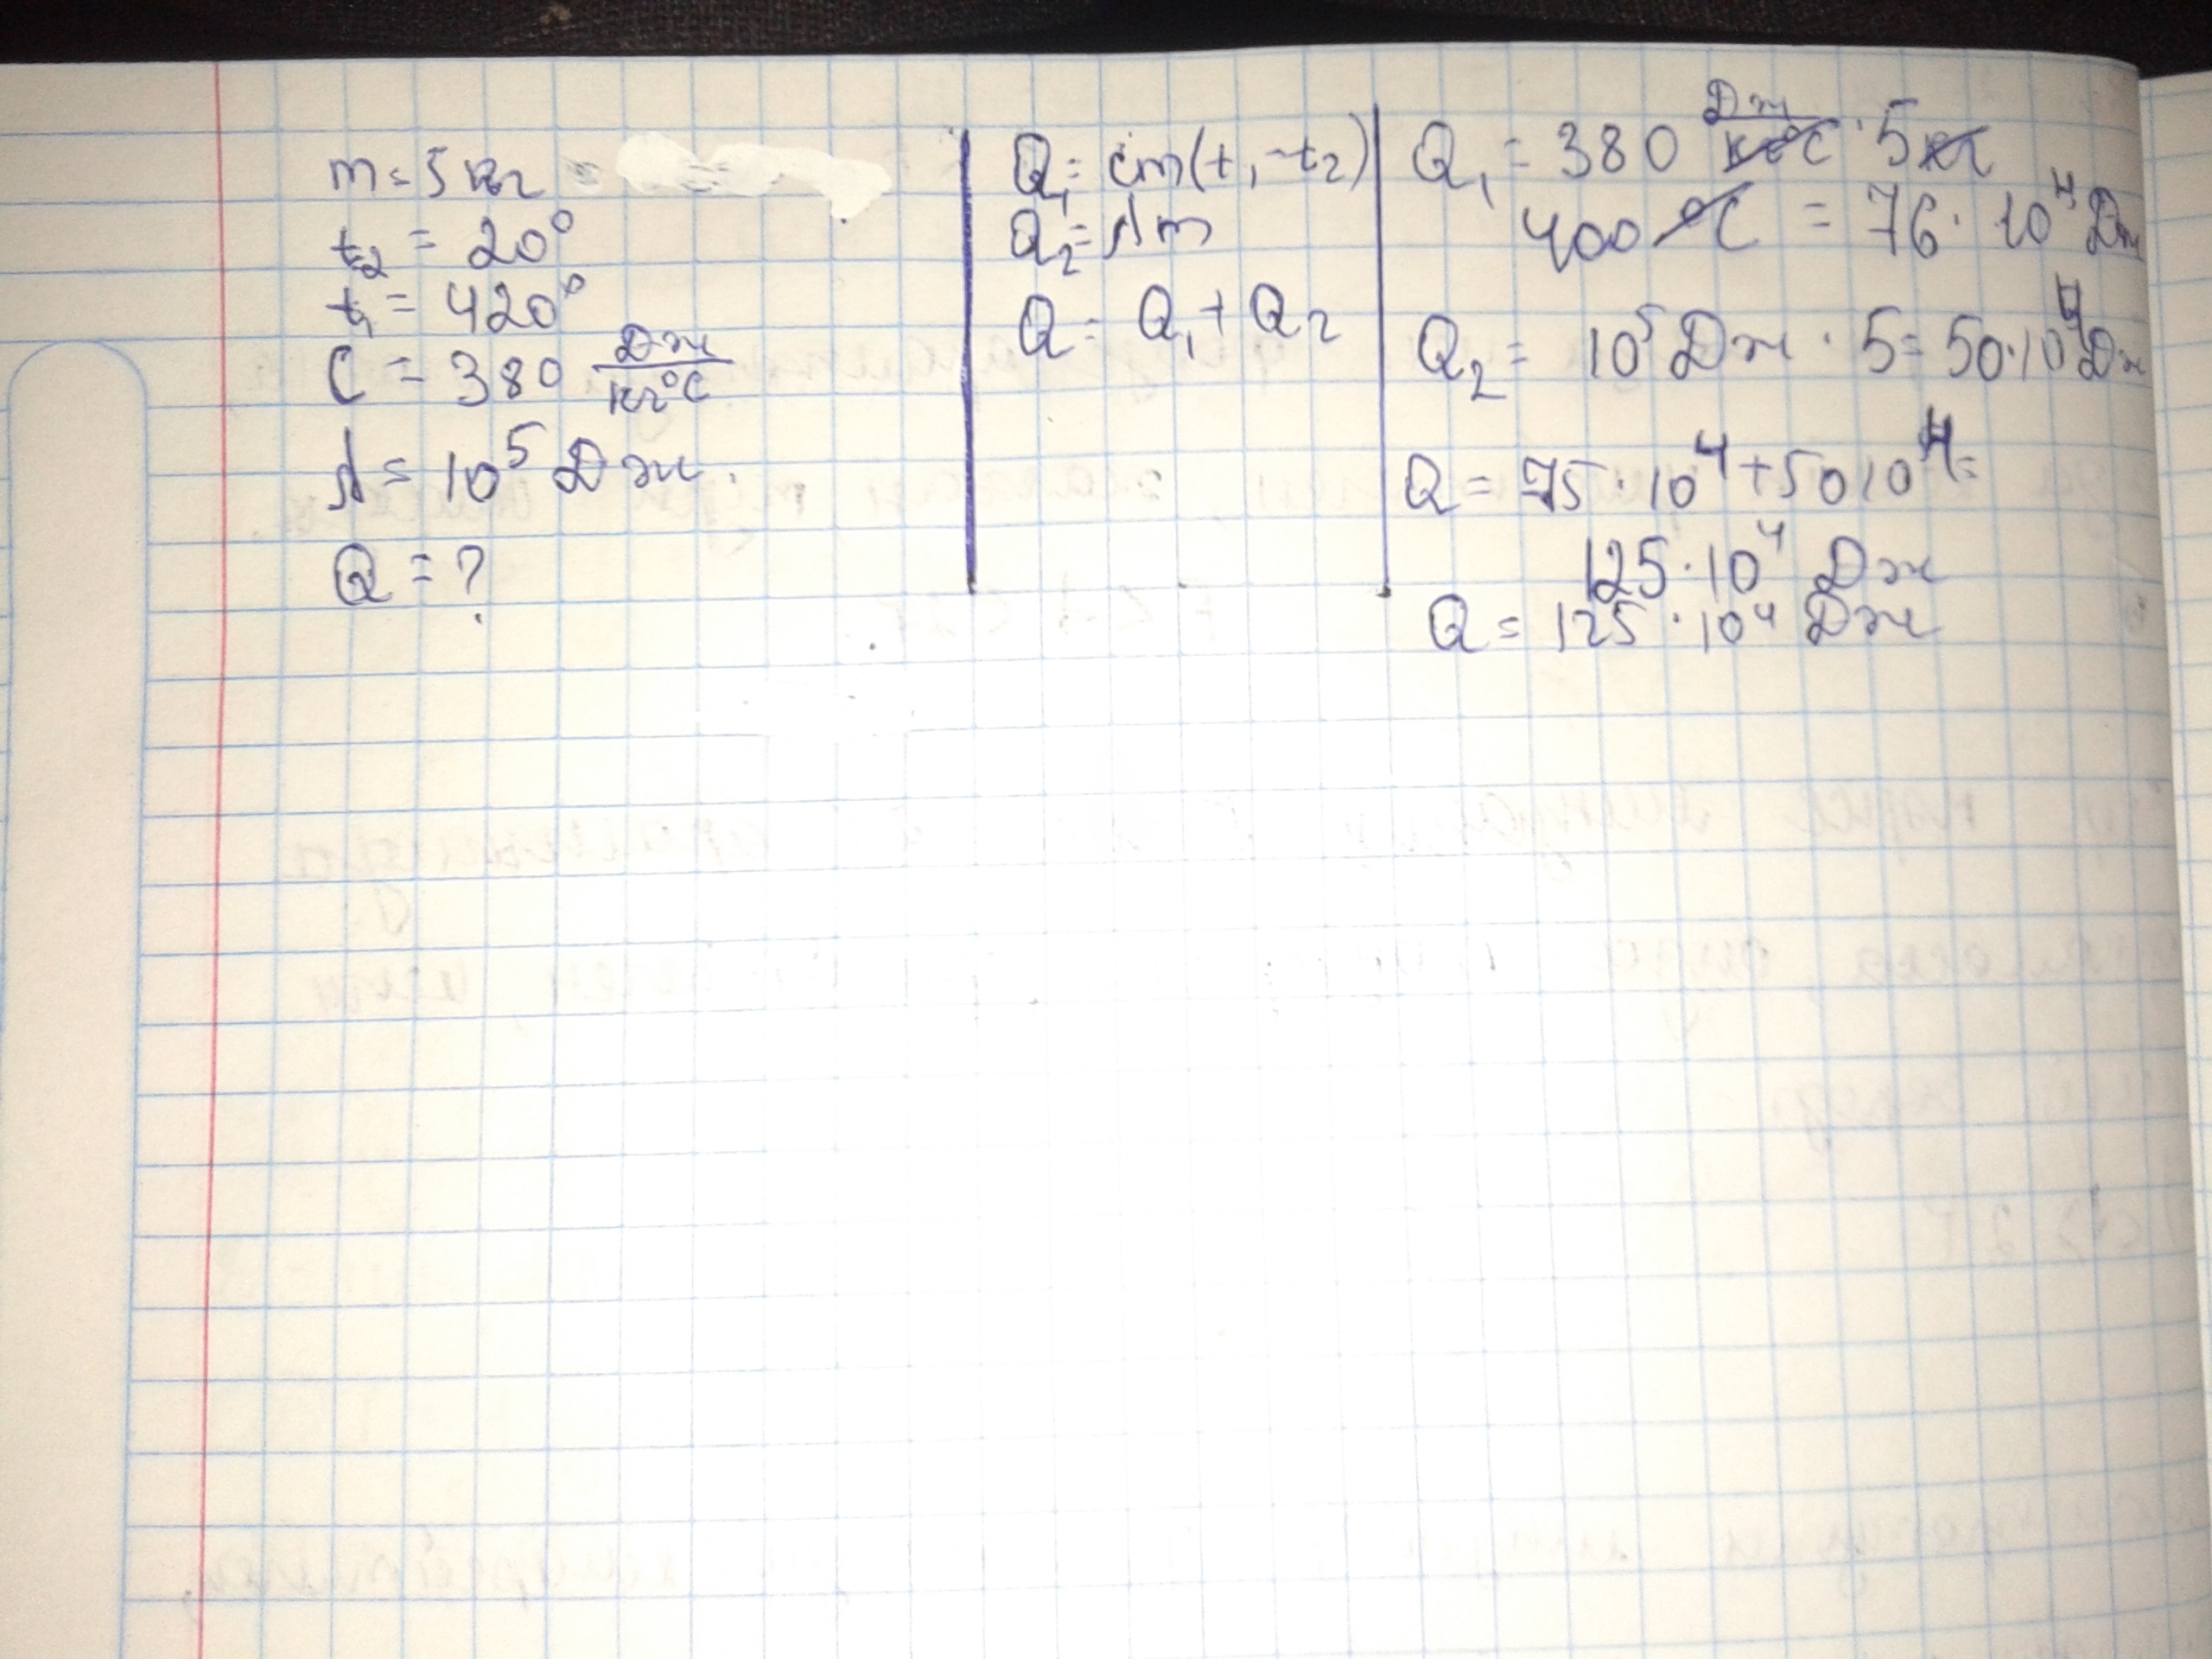 m = 5 кг
t₂ = 20°
t₁ = 420°
C = 380 Дж/кг°C
λ = 10⁵ Дж.
Q = ?
Q₁ = cm(t₁ - t₂)
Q₂ = λm
Q = Q₁ + Q₂
Q₁ = 380 Дж/кг°C · 5кг
400 °C = 76 · 10⁴ Дж
Q₂ = 10⁵ Дж · 5 = 50 · 10⁴ Дж
Q = 75 · 10⁴ + 50 10⁴ =
125 · 10⁴ Дж
Q = 125 · 10⁴ Дж